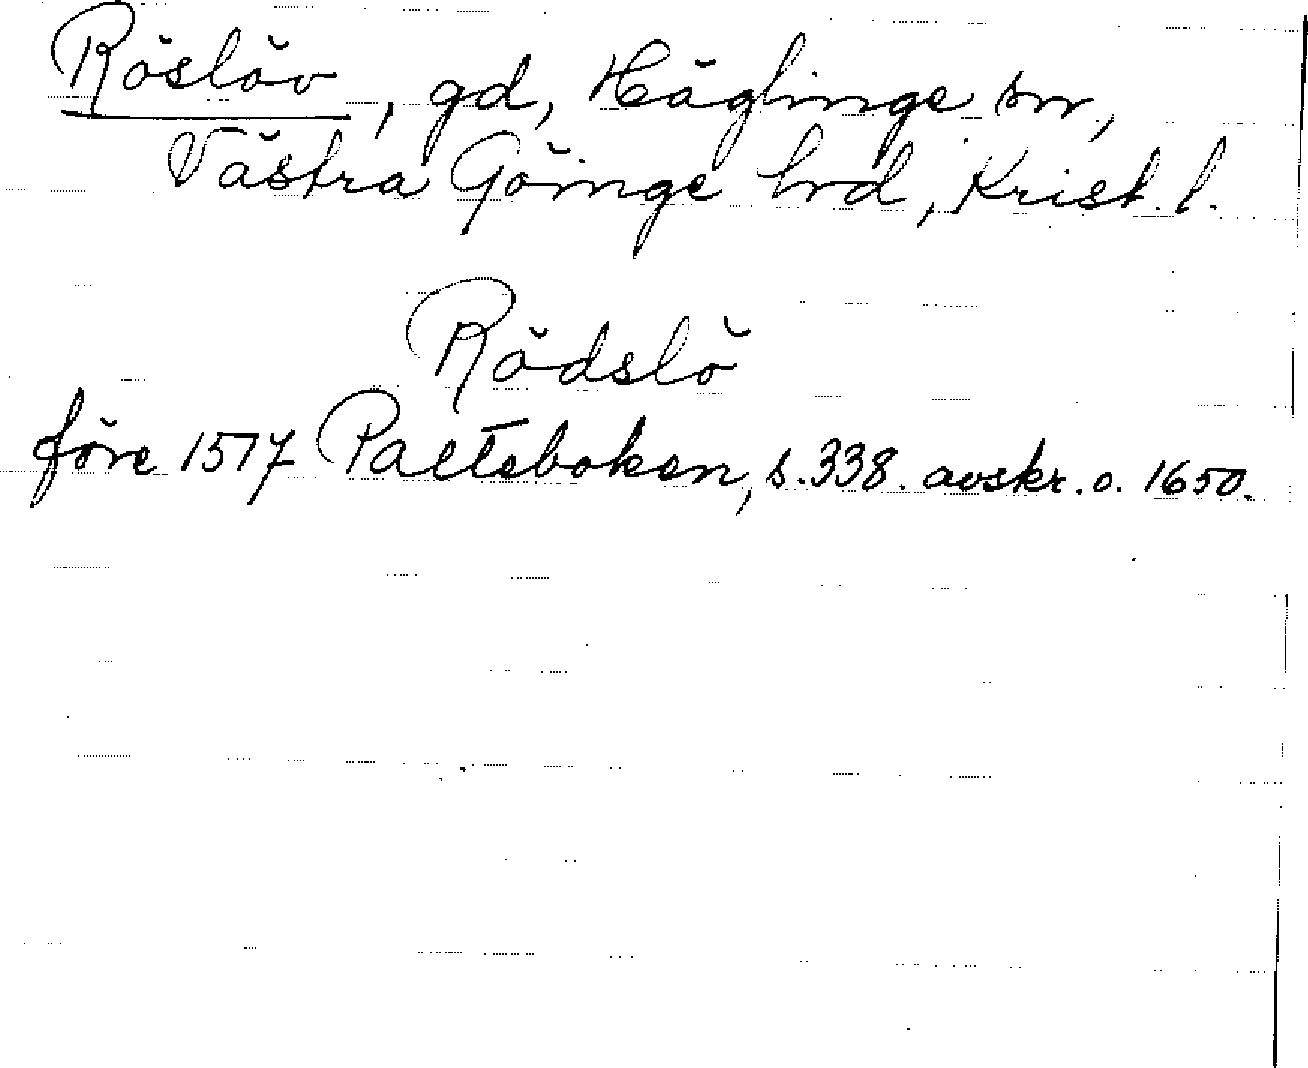 Röslöv, gd, Häglinge sn,
Västra Göinge hrd, Krist. l.
Rödslö
före 1517 Palteboken, s. 338. avskr. o. 1650.